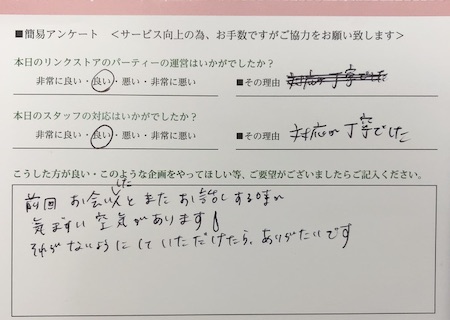 ■簡易アンケート ＜サービス向上の為、お手数ですがご協力をお願い致します＞
本日のリンクストアのパーティーの運営はいかがでしたか？
非常に良い・良い・悪い・非常に悪い ■その理由 対応が丁寧でした
本日のスタッフの対応はいかがでしたか？
非常に良い・良い・悪い・非常に悪い ■その理由 対応が丁寧でした
こうした方が良い・このような企画をやってほしい等、ご要望がございましたらご記入ください。
前回お会いした人とまたお話しする時が
気まずい空気があります！
それがないようにしていただけたら、ありがたいです